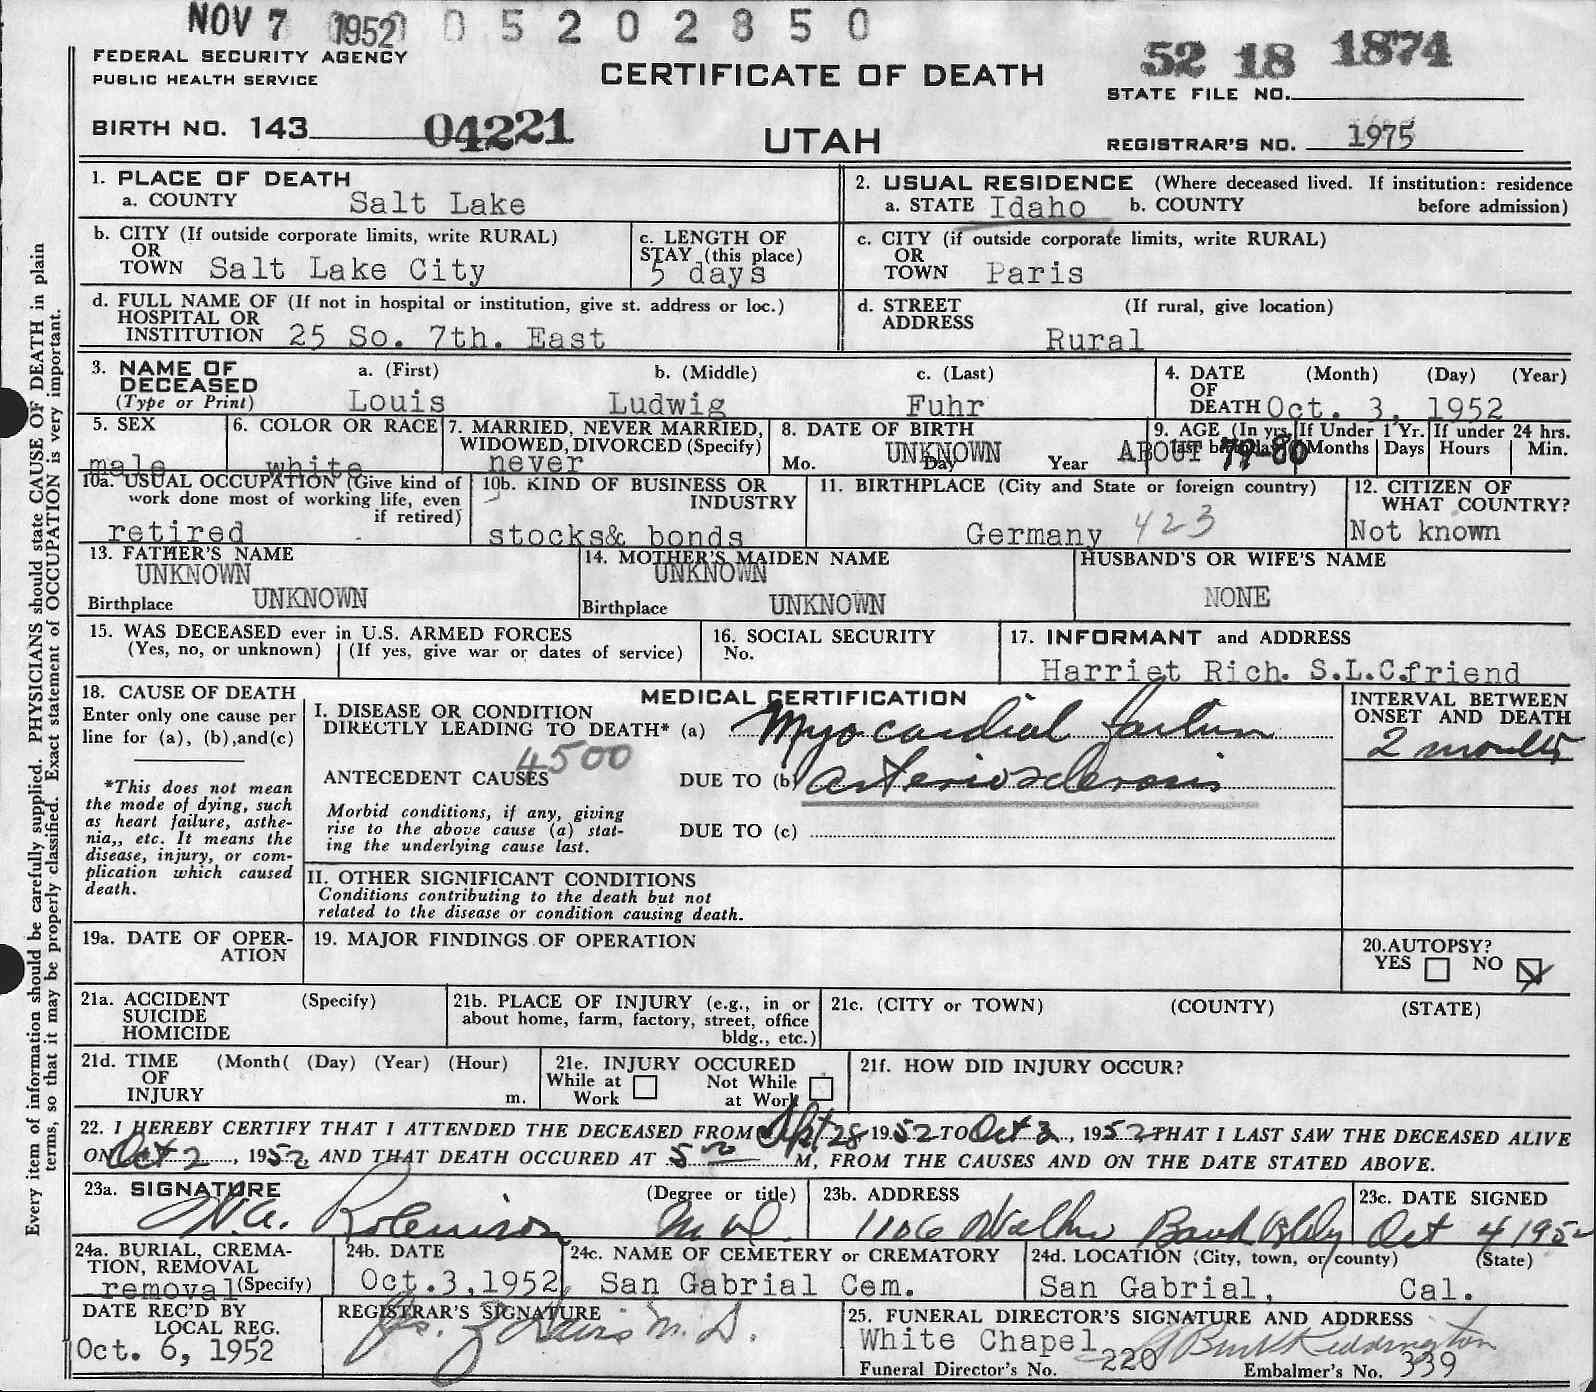 NOV 7 1952 0 5 2 0 2 8 5 0
FEDERAL SECURITY AGENCY
PUBLIC HEALTH SERVICE
CERTIFICATE OF DEATH
52 18 1874
STATE FILE NO.
BIRTH NO. 143 04221
UTAH
REGISTRAR'S NO. 1975
1. PLACE OF DEATH
a. COUNTY Salt Lake
2. USUAL RESIDENCE (Where deceased lived. If institution: residence
a. STATE Idaho b. COUNTY before admission)
b. CITY (If outside corporate limits, write RURAL)
OR
TOWN Salt Lake City
c. LENGTH OF
STAY (this place)
5 days
c. CITY (if outside corporate limits, write RURAL)
OR
TOWN Paris
d. FULL NAME OF (If not in hospital or institution, give st. address or loc.)
HOSPITAL OR
INSTITUTION 25 So. 7th. East
d. STREET (If rural, give location)
ADDRESS
Rural
3. NAME OF a. (First) b. (Middle) c. (Last)
DECEASED
(Type or Print) Louis Ludwig Fuhr
4. DATE (Month) (Day) (Year)
OF
DEATH Oct. 3, 1952
5. SEX
male
6. COLOR OR RACE
white
7. MARRIED, NEVER MARRIED,
WIDOWED, DIVORCED (Specify)
never
8. DATE OF BIRTH
UNKNOWN
Mo. Day Year
9. AGE (In yrs. last birthday) If Under 1 Yr. If under 24 hrs.
ABOUT 79-80 Months Days Hours Min.
10a. USUAL OCCUPATION (Give kind of
work done most of working life, even
if retired)
retired
10b. KIND OF BUSINESS OR
INDUSTRY
stocks& bonds
11. BIRTHPLACE (City and State or foreign country)
Germany 423
12. CITIZEN OF
WHAT COUNTRY?
Not known
13. FATHER'S NAME
UNKNOWN
Birthplace UNKNOWN
14. MOTHER'S MAIDEN NAME
UNKNOWN
Birthplace UNKNOWN
HUSBAND'S OR WIFE'S NAME
NONE
15. WAS DECEASED ever in U.S. ARMED FORCES
(Yes, no, or unknown) (If yes, give war or dates of service)
16. SOCIAL SECURITY
No.
17. INFORMANT and ADDRESS
Harriet Rich. S.L.C.friend
18. CAUSE OF DEATH
Enter only one cause per
line for (a), (b),and(c)
*This does not mean
the mode of dying, such
as heart failure, asthe-
nia,, etc. It means the
disease, injury, or com-
plication which caused
death.
MEDICAL CERTIFICATION
I. DISEASE OR CONDITION
DIRECTLY LEADING TO DEATH* (a) Myocardial failure
4500
ANTECEDENT CAUSES DUE TO (b) arteriosclerosis
Morbid conditions, if any, giving
rise to the above cause (a) stat-
ing the underlying cause last.
DUE TO (c)
INTERVAL BETWEEN
ONSET AND DEATH
2 months
II. OTHER SIGNIFICANT CONDITIONS
Conditions contributing to the death but not
related to the disease or condition causing death.
19a. DATE OF OPER-
ATION
19. MAJOR FINDINGS OF OPERATION
20.AUTOPSY?
YES NO
21a. ACCIDENT (Specify)
SUICIDE
HOMICIDE
21b. PLACE OF INJURY (e.g., in or
about home, farm, factory, street, office
bldg., etc.)
21c. (CITY or TOWN) (COUNTY) (STATE)
21d. TIME (Month( (Day) (Year) (Hour)
OF
INJURY m.
21e. INJURY OCCURED
While at Not While
Work at Work
21f. HOW DID INJURY OCCUR?
22. I HEREBY CERTIFY THAT I ATTENDED THE DECEASED FROM Sept 28 1952 TO Oct 2, 1952 THAT I LAST SAW THE DECEASED ALIVE
ON Oct 2, 1952 AND THAT DEATH OCCURED AT 5 00 M, FROM THE CAUSES AND ON THE DATE STATED ABOVE.
23a. SIGNATURE (Degree or title)
Robinson M.D.
23b. ADDRESS
1106 Walker Bank Bldg
23c. DATE SIGNED
Oct 4 1952
24a. BURIAL, CREMA-
TION, REMOVAL
removal (Specify)
24b. DATE
Oct.3,1952
24c. NAME OF CEMETERY or CREMATORY
San Gabrial Cem.
24d. LOCATION (City, town, or county) (State)
San Gabrial, Cal.
DATE REC'D BY
LOCAL REG.
Oct. 6, 1952
REGISTRAR'S SIGNATURE
M.D.
25. FUNERAL DIRECTOR'S SIGNATURE AND ADDRESS
White Chapel
Funeral Director's No. 220 Embalmer's No. 339
Every item of information should be carefully supplied. PHYSICIANS should state CAUSE OF DEATH in plain
terms, so that it may be properly classified. Exact statement of OCCUPATION is very important.